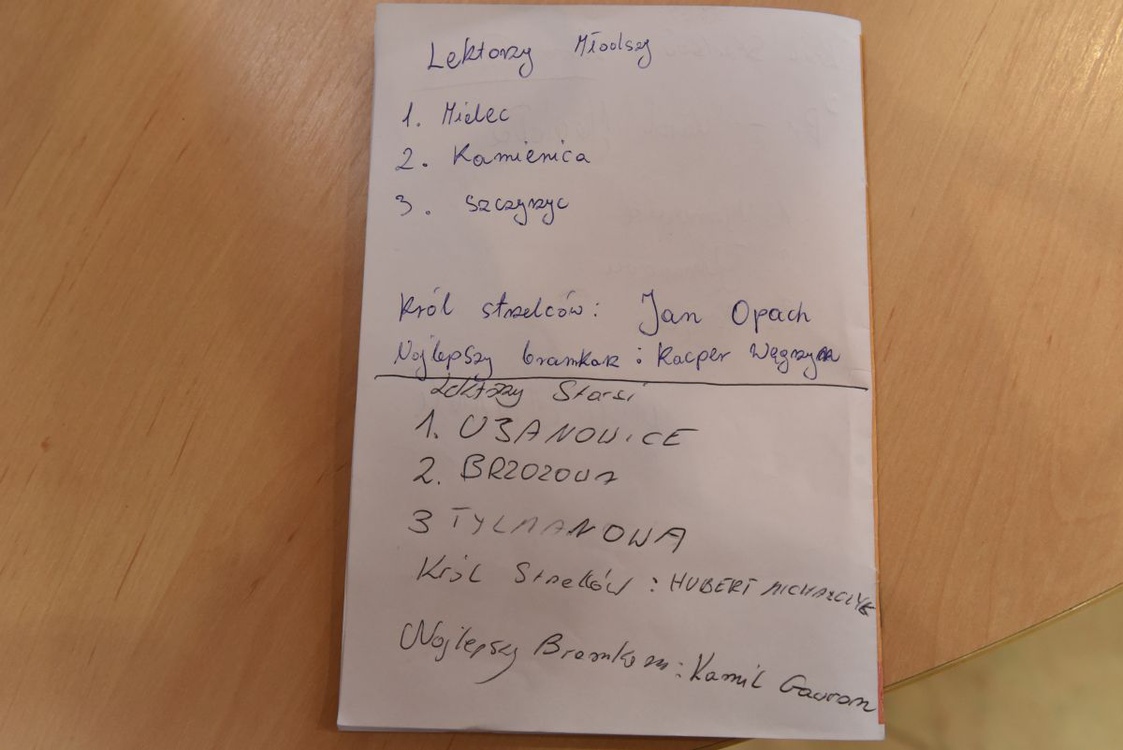 Lektorzy Młodszy
1. Mielec
2. Kamienica
3. Szczyrzyc
Król strzelców: Jan Opach
Najlepszy bramkarz: Kacper Węgrzyn
Lektorzy Starsi
1. UJANOWICE
2. BRZOZOWA
3 TYLMANOWA
Król Strzelców: HUBERT MICHALCZYK
Najlepszy Bramkarz: Kamil Gawron